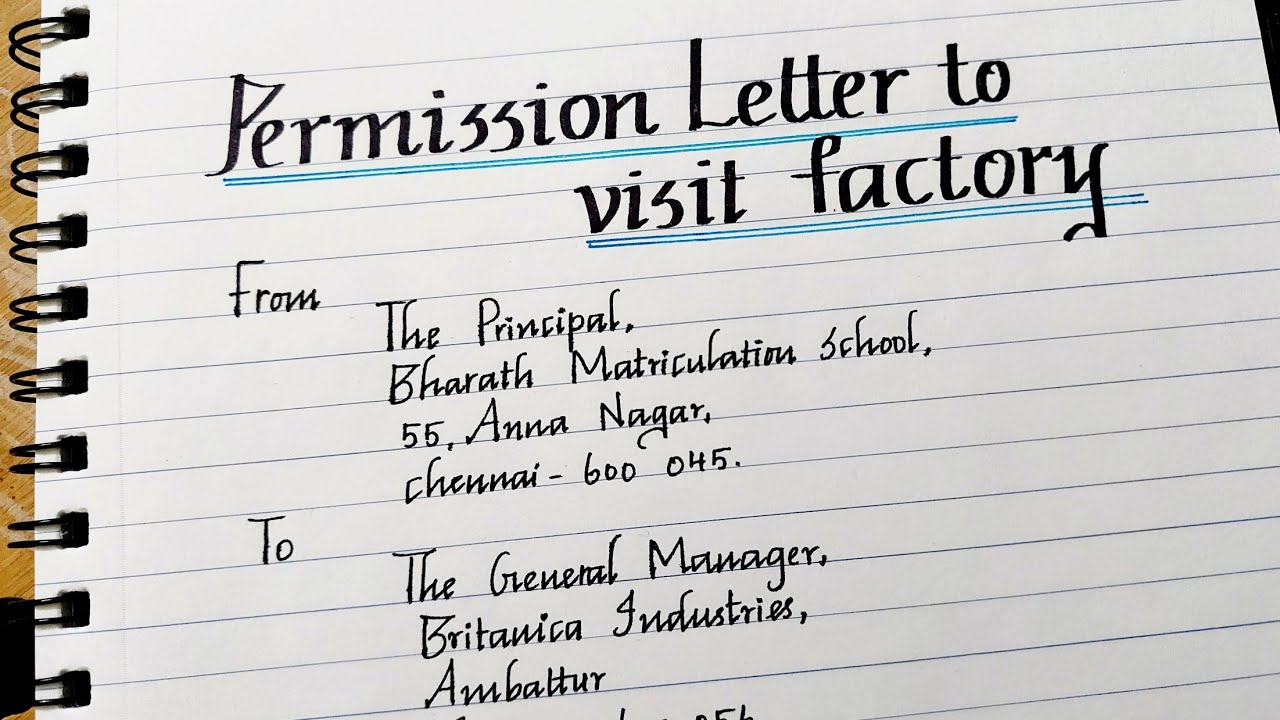 Permission Letter to
visit factory
From
The Principal,
Bharath Matriculation School,
55, Anna Nagar,
Chennai - 600 045.
To
The General Manager,
Britanica Industries,
Ambattur